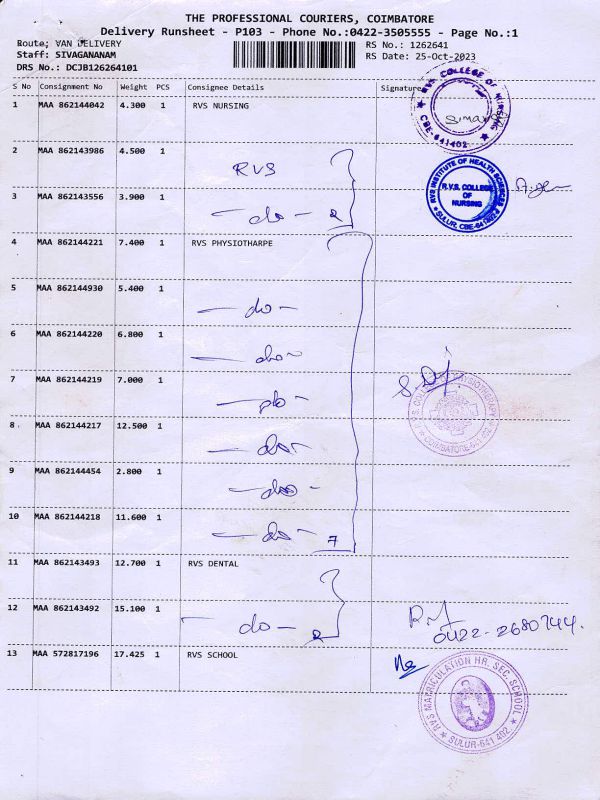 THE PROFESSIONAL COURIERS, COIMBATORE
Delivery Runsheet - P103 - Phone No.:0422-3505555 - Page No.:1
Route; VAN DELIVERY
RS No.: 1262641
Staff: SIVAGANANAM
RS Date: 25-Oct-2023
DRS No.: DCJB126264101
S No Consignment No Weight PCS Consignee Details Signature
1 MAA 862144042 4.300 1 RVS NURSING
RVS COLLEGE OF NURSING
CBE-641402
2 MAA 862143986 4.500 1
RVS
RVS INSTITUTE OF HEALTH SCIENCES
R.V.S. COLLEGE
OF
NURSING
SULUR, CBE-641402
3 MAA 862143556 3.900 1
- do - 2
4 MAA 862144221 7.400 1 RVS PHYSIOTHARPE
5 MAA 862144930 5.400 1
- do -
6 MAA 862144220 6.800 1
- do -
7 MAA 862144219 7.000 1
- do -
R.V.S. COLLEGE OF PHYSIOTHERAPY
COIMBATORE-641 402
8 MAA 862144217 12.500 1
- do -
9 MAA 862144454 2.800 1
- do -
10 MAA 862144218 11.600 1
- do - 7
11 MAA 862143493 12.700 1 RVS DENTAL
12 MAA 862143492 15.100 1
- do - 2
0422-2680744.
13 MAA 572817196 17.425 1 RVS SCHOOL
RVS MATRICULATION HR. SEC. SCHOOL
SULUR-641 402